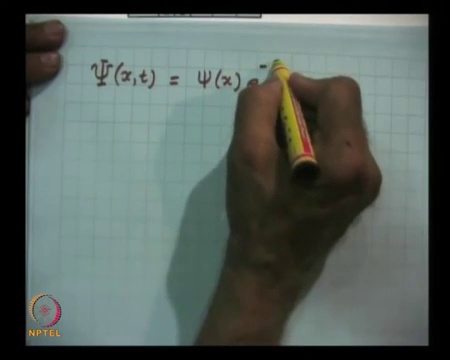 Ψ(x,t) = ψ(x) e⁻
NPTEL